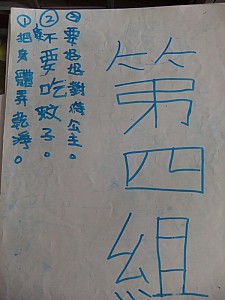 第四組
①把身體弄乾淨。
②不要吃蚊子。
③要好好對待公主。